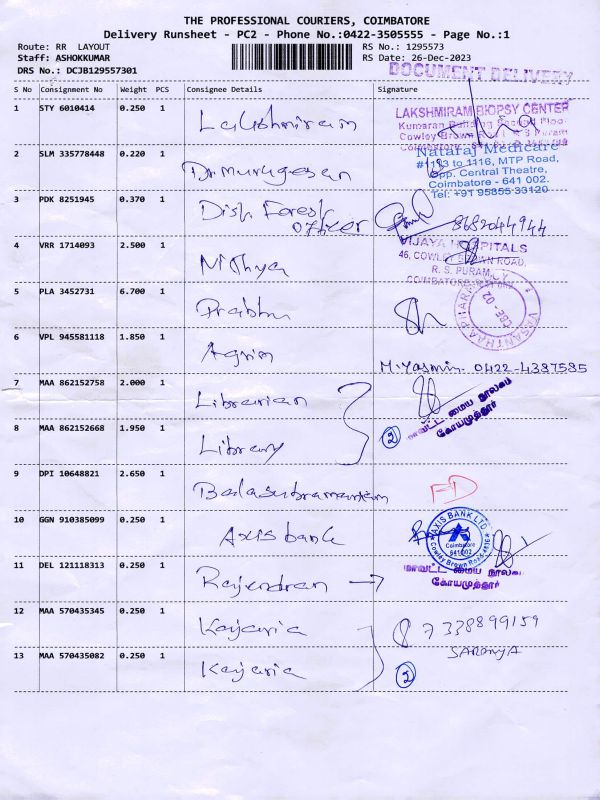 THE PROFESSIONAL COURIERS, COIMBATORE
Delivery Runsheet - PC2 - Phone No.:0422-3505555 - Page No.:1
Route: RR LAYOUT
RS No.: 1295573
Staff: ASHOKKUMAR
RS Date: 26-Dec-2023
DRS No.: DCJB129557301
DOCUMENT DELIVERY
S No Consignment No Weight PCS Consignee Details Signature
1 STY 6010414 0.250 1 Lakshmiram
LAKSHMIRAM BIOPSY CENTER
Kumaran Building Second Floor
Cowley Brown
2 SLM 335778448 0.220 1 Dr Murugesan
Nataraj Medicare
#1113 to 1116, MTP Road,
Opp. Central Theatre,
Coimbatore - 641 002.
Tel: +91 95855 33120
3 PDK 8251945 0.370 1 Dist. Forest
Officer
8682044944
4 VRR 1714093 2.500 1 Nithya
VIJAYA HOSPITALS
46, COWLEY BROWN ROAD,
R. S. PURAM,
COIMBATORE
5 PLA 3452731 6.700 1 Prabhu
VASANTHAA PHARMACY
CBE - 02
6 VPL 945581118 1.850 1 Agrim
M.Yasmin. 0422-4387585
7 MAA 862152758 2.000 1 Librarian
மாவட்ட மைய நூலகம்
கோயமுத்தூர்
8 MAA 862152668 1.950 1 Library
2
9 DPI 10648821 2.650 1 Balasubramaniam
FD
10 GGN 910385099 0.250 1 Axis bank
AXIS BANK LTD.
Coimbatore
641002
Cowley Brown Road
11 DEL 121118313 0.250 1 Rajendran →
மாவட்ட மைய நூலகம்
கோயமுத்தூர்
12 MAA 570435345 0.250 1 Kajaria
7338899159
SARANYA
13 MAA 570435082 0.250 1 Kajaria
2